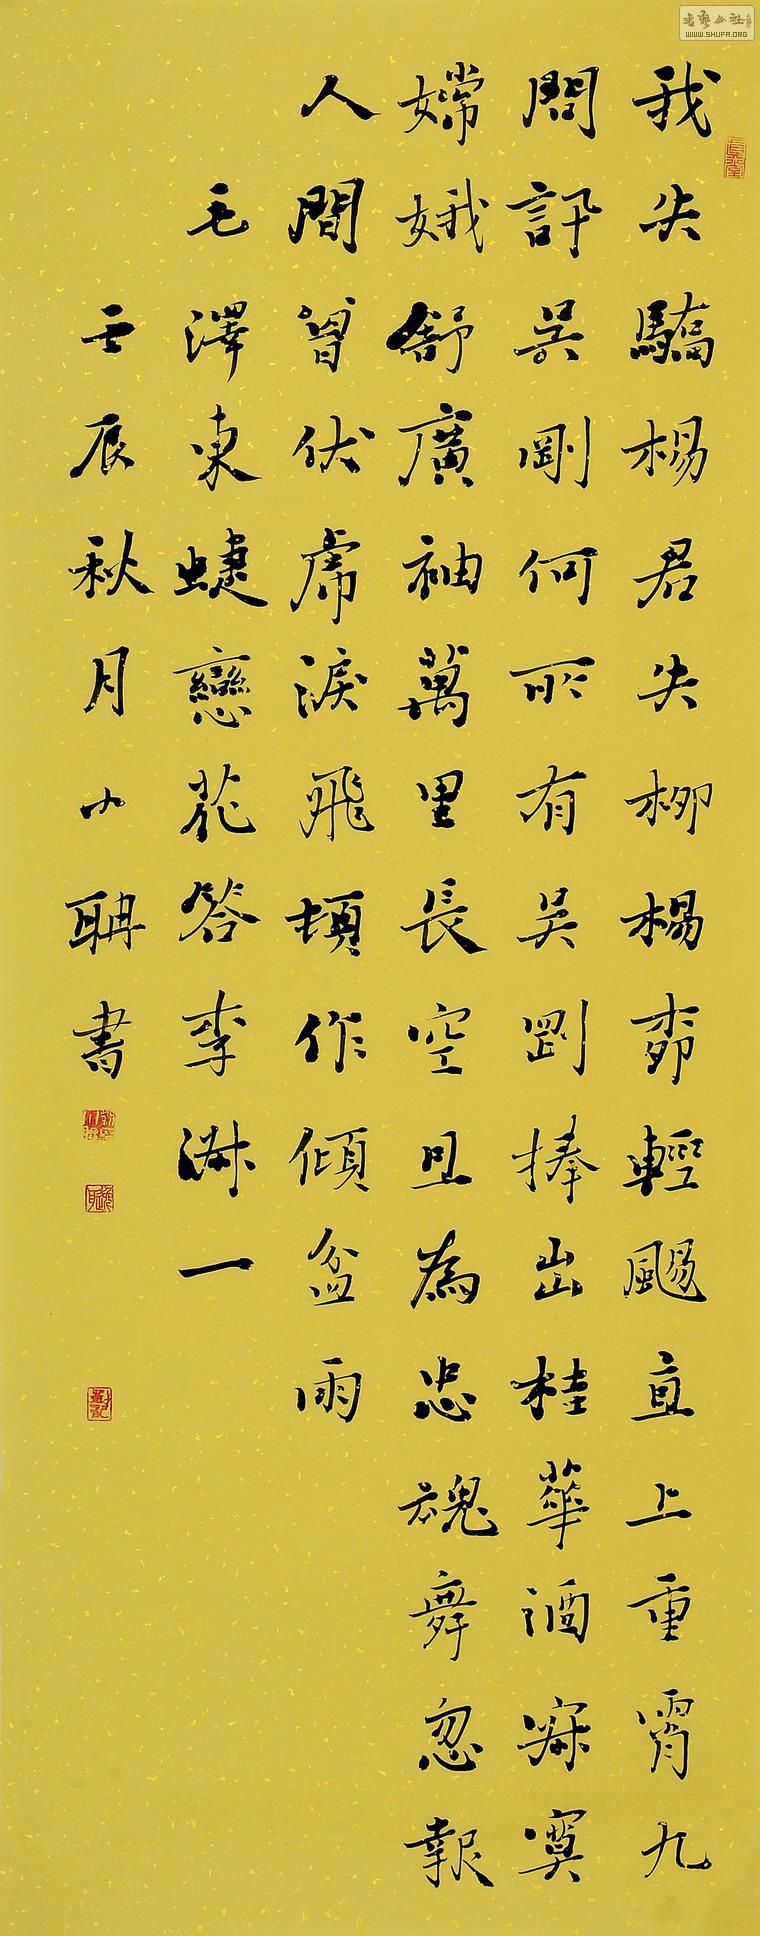 我失驕楊君失柳楊桺輕颺直上重霄九
問訊吳剛何所有吳剛捧出桂華酒寂寞
嫦娥舒廣袖萬里長空且為忠魂舞忽報
人間曾伏虎淚飛頓作傾盆雨
毛澤東蝶戀花答李淑一
壬辰秋月小聃書
WWW.SHUFA.ORG